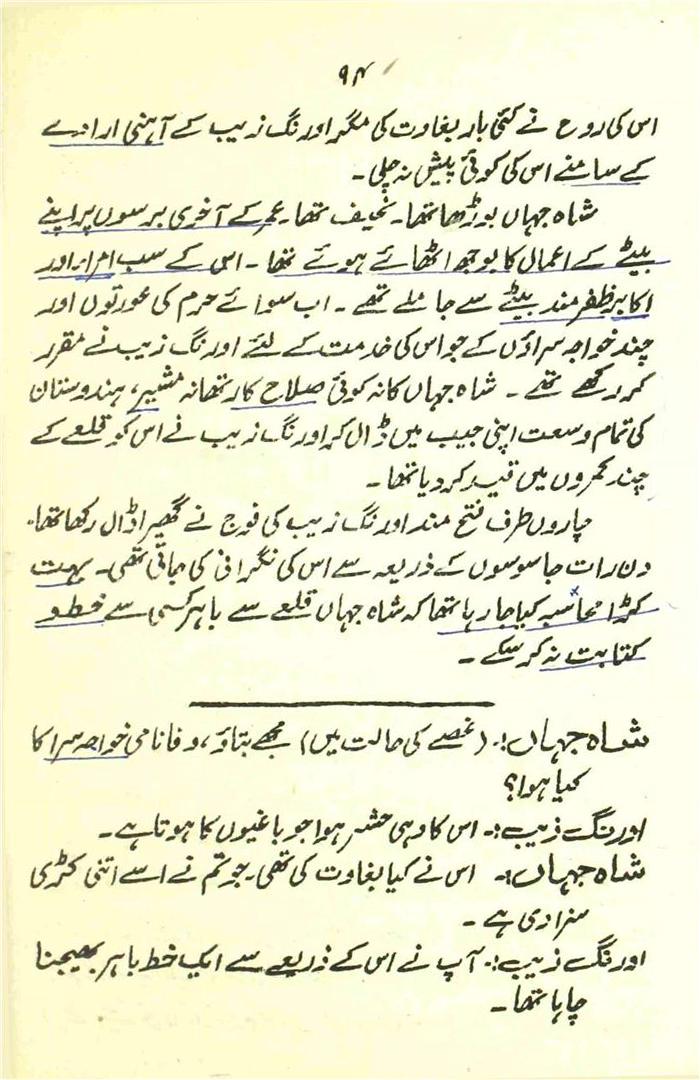 ۹۴
اس کی روح نے کئی بار بغاوت کی مگر اورنگ زیب کے آہنی ارادے
کے سامنے اس کی کوئی پیش نہ چلی۔
شاہ جہاں بوڑھا تھا۔ نحیف تھا۔ عمر کے آخری برسوں پر اپنے
بیٹے کے اعمال کا بوجھ اٹھائے ہوئے تھا۔ اس کے سب امراء اور
اکابر ظفر مند بیٹے سے جا ملے تھے۔ اب سوائے حرم کی عورتوں اور
چند خواجہ سراؤں کے جو اس کی خدمت کے لئے اورنگ زیب نے مقرر
کر رکھے تھے۔ شاہ جہاں کا نہ کوئی صلاح کار تھا نہ مشیر، ہندوستان
کی تمام وسعت اپنی جیب میں ڈال کر اورنگ زیب نے اس کو قلعے کے
چند کمروں میں قید کر دیا تھا۔
چاروں طرف فتح مند اورنگ زیب کی فوج نے گھیرا ڈال رکھا تھا۔
دن رات جاسوسوں کے ذریعہ سے اس کی نگرانی کی جاتی تھی۔ بہت
کڑا محاسبہ کیا جا رہا تھا کہ شاہ جہاں قلعے سے باہر کسی سے خط و
کتابت نہ کر سکے۔
شاہ جہاں:۔ (غصے کی حالت میں) مجھے بتاؤ، وفا نامی خواجہ سرا کا
کیا ہوا؟
اورنگ زیب:۔ اس کا وہی حشر ہوا جو باغیوں کا ہوتا ہے۔
شاہ جہاں:۔ اس نے کیا بغاوت کی تھی۔ جو تم نے اسے اتنی کڑی
سزا دی ہے۔
اورنگ زیب:۔ آپ نے اس کے ذریعے سے ایک خط باہر بھیجنا
چاہا تھا۔